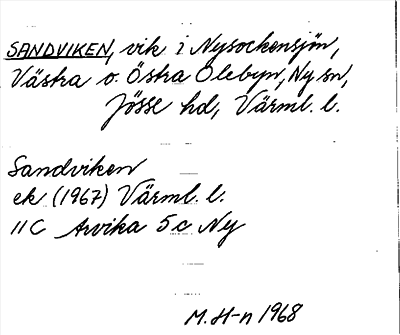 SANDVIKEN, vik i Nysockensjön,
Västra o. Östra Ölebyn, Ny sn,
Jösse hd, Värml. l.
Sandviken
ek (1967) Värml. l.
11C Arvika 5c Ny
M. H-n 1968